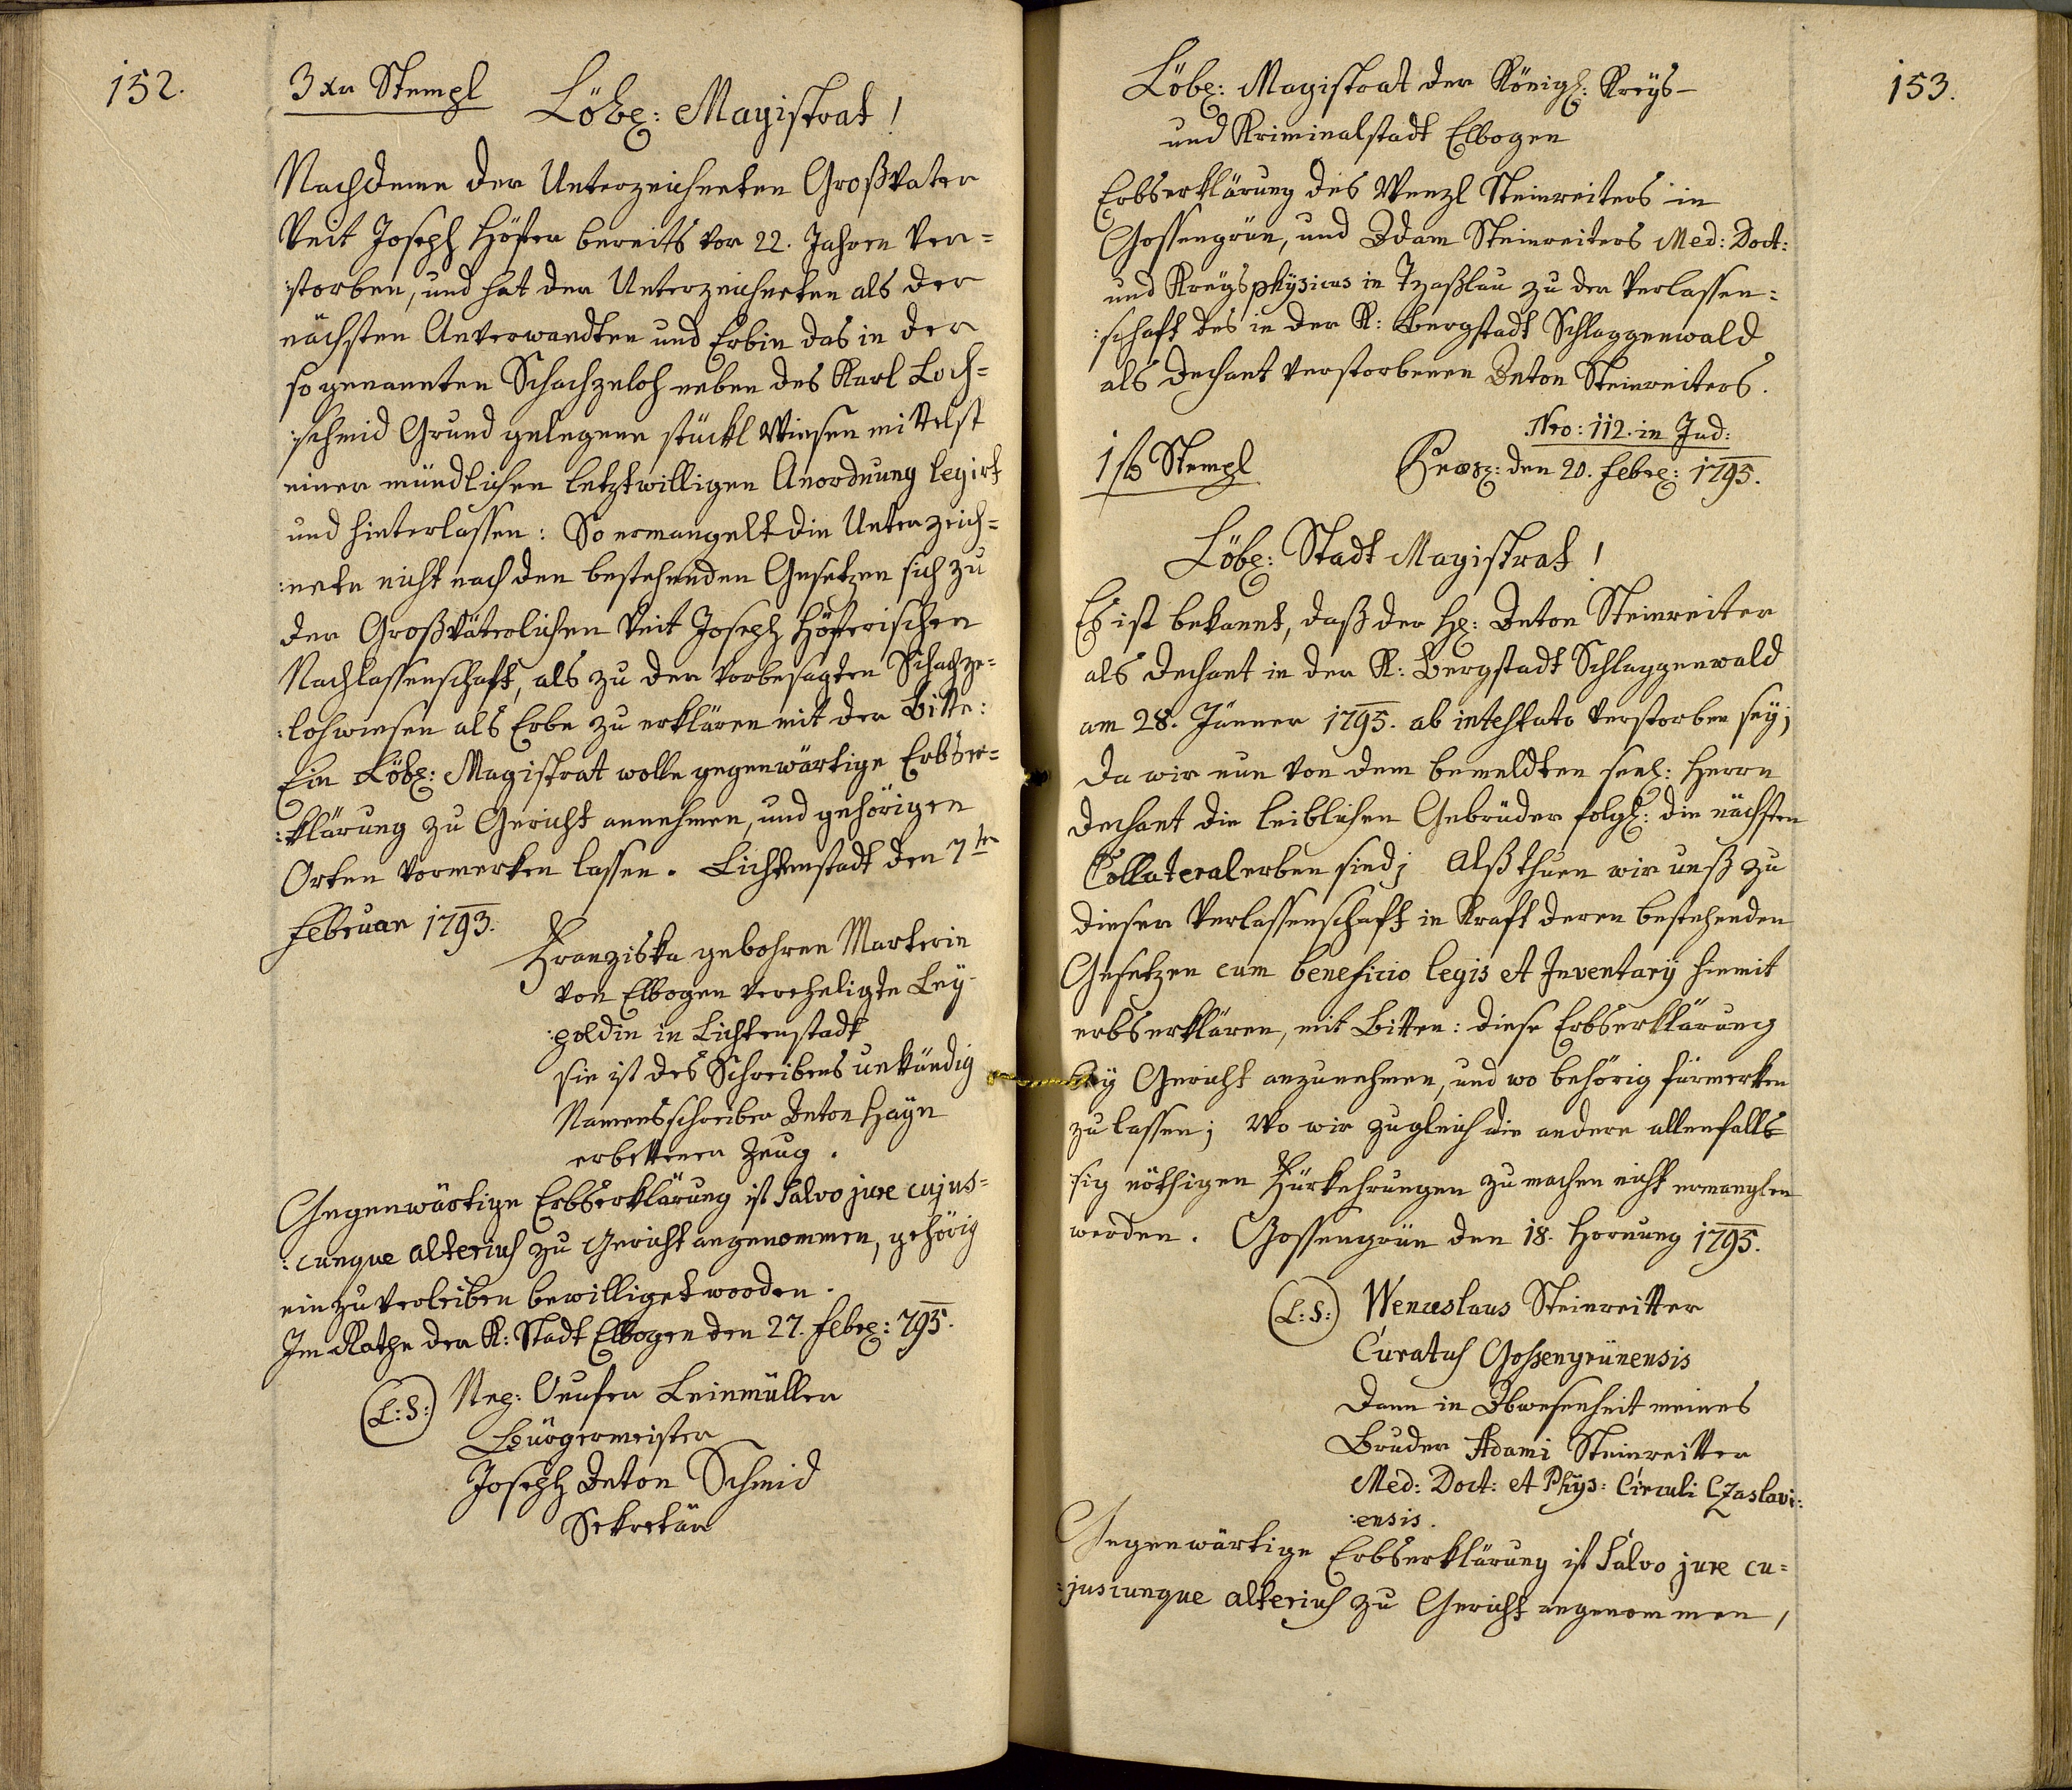 152.
3 xr Stempl
Löbl: Magistrat!
Nachdeme der Unterzeichneten Großvater
Veit Joseph Höfer bereits vor 22. Jahren ver=
:storben, und hat der Unterzeichneten als der
nächsten Anverwandten und Erbin das in der
so genannten Schachzeloh neben des Karl Loch=
:schmid Grund gelegene stückl Wiesen mittelst
einer mündlichen letztwilligen Anordnung legirt
und hinterlassen: So ermangelt die Unterzeich=
:nete nicht nach den bestehenden Gesetzen sich zu
der Großväterlichen Veit Joseph Höferischen
Nachlassenschaft, als zu der vorbesagten Schachze=
:lohwiesen als Erbe zu erklären mit der Bitte:
Ein Löbl: Magistrat wolle gegenwärtige Erbser=
:klärung zu Gericht annehmen, und gehörigen
Orten vormerken lassen. Lichtenstadt den 7ten
Februar 1793.
Franziska gebohrne Marterin
von Elbogen verehligte Ley-
:poldin in Lichtenstadt
sie ist des Schreibens unkündig
Namensschreiber Anton Hayn
erbettener Zeug.
Gegenwärtige Erbserklärung ist Salvo jure cujus=
:cunque alterius zu Gericht angenommen, gehörig
einzuverleiben bewilliget worden.
Im Rathe der K: Stadt Elbogen den 27. Febr: 795.
(L:S:) Nep: Leinmüller
Bürgermeister
Joseph Anton Schmid
Sekretär
153.
Löbl: Magistrat der Königl: Kreys-
und Kriminalstadt Elbogen
Erbserklärung des Wenzl Steinreiters in
Gossengrün, und Adam Steinreiters Med: Doct:
und Kreysphysicus in Tzaßlau zu der Verlassen=
:schaft des in der K: Bergstadt Schlaggenwald
als Dechant verstorbenen Anton Steinreiters.
Nro: 112. in Jud:
1 ß Stempl
den 20. Febr: 1795.
Löbl: Stadt Magistrat!
Es ist bekannt, daß der H: Anton Steinreiter
als Dechant in der K: Bergstadt Schlaggenwald
am 28. Jänner 1795. ab intestato verstorben sey;
Da wir nun von dem bemeldten seel: Herrn
Dechant die leiblichen Gebrüder folgl: die nächsten
Collateralerben sind; Alß thuen wir unß zu
dieser Verlassenschaft in Kraft deren bestehenden
Gesetzen cum beneficio legis et Inventarij hiemit
erbserklären, mit Bitten: diese Erbserklärung
bey Gericht anzunehmen, und wo behörig fürmerken
zu lassen; Wo wir zugleich die andere allenfalls
sig nöthigen Fürkehrungen zu machen nicht ermanglen
werden. Gossengrün den 18. Hornung 1795.
(L:S:) Wenceslaus Steinreitter
Curatus Gossengrünensis
Dann in Abwesenheit meines
Bruder Adami Steinreitter
Med: Doct: et Phys: Circuli Czaslavi:
:ensis.
Gegenwärtige Erbserklärung ist Salvo jure cu=
:juscunque alterius zu Gericht angenommen,